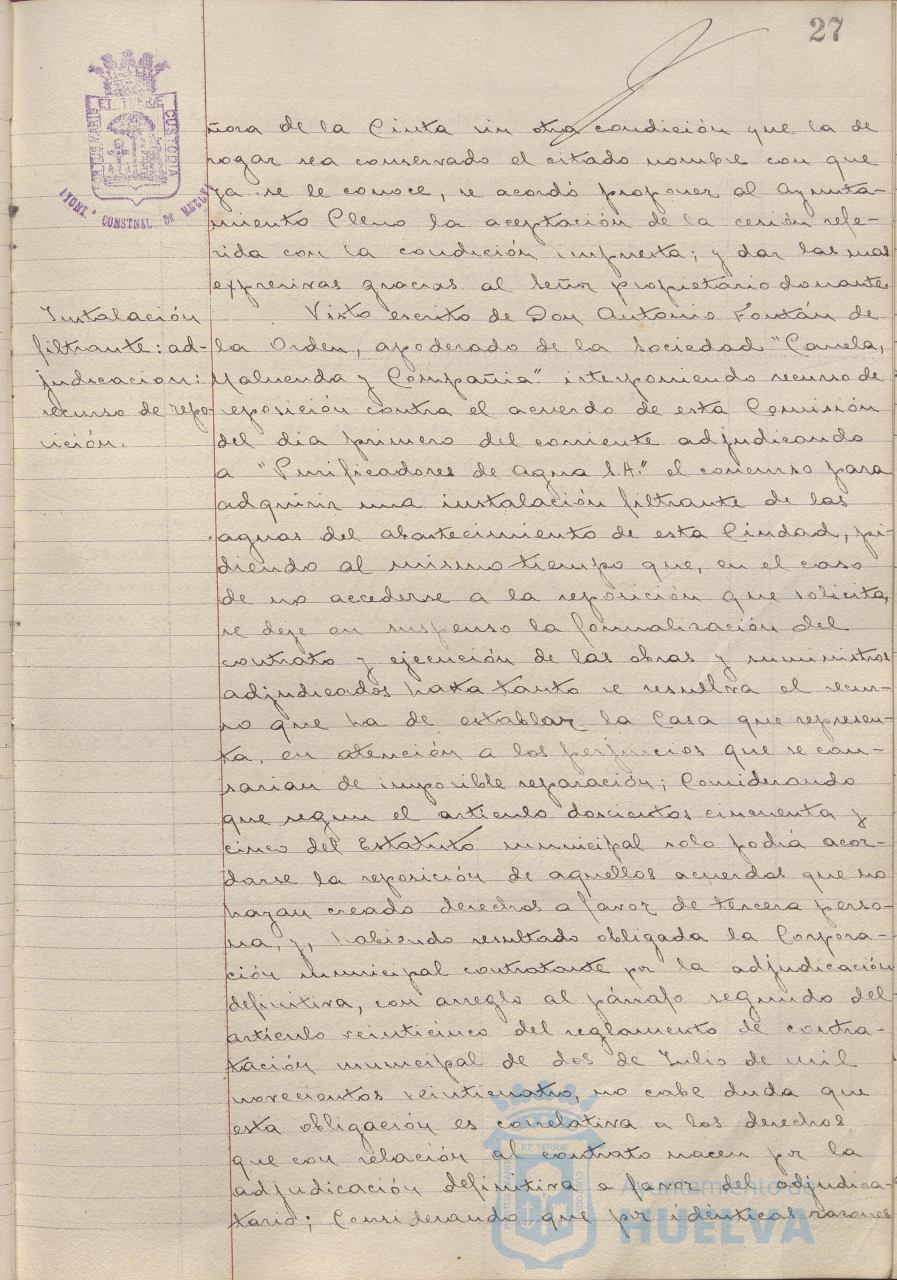 27
ET TERRÆ
PORTUS MARIS
CUSTODIA
AYUNT.º CONSTNAL. DE HUELVA
ñora de la Cinta sin otra condición que la de
rogar sea conservado el citado nombre con que
ya se le conoce, se acordó proponer al Ayunta-
miento Pleno la aceptación de la cesión refe-
rida con la condición impuesta; y dar las mas
expresivas gracias al señor propietario donante.
Instalación
filtrante: ad-
judicacion:
recurso de repo-
sición.
Visto escrito de Don Antonio Fontán de
la Orden, apoderado de la Sociedad "
Maluenda y Compañia" interponiendo recurso de
reposición contra el acuerdo de esta Comisión
del dia primero del corriente adjudicando
a "Purificadores de Agua S.A." el concurso para
adquirir una instalación filtrante de las
aguas del abastecimiento de esta Ciudad, pi-
diendo al mismo tiempo que, en el caso
de no accederse a la reposición que solicita,
se deje en suspenso la formalización del
contrato y ejecución de las obras y suministros
adjudicados hasta tanto se resuelva el recur-
so que ha de establar la Casa que represen-
ta, en atención a los perjuicios que se cau-
sarian de imposible reparación; Considerando
que segun el articulo doscientos cincuenta y
cinco del Estatuto municipal solo podrá acor-
darse la reposición de aquellos acuerdos que no
hayan creado derechos a favor de tercera perso-
na, y, habiendo resultado obligada la Corpora-
ción municipal contratante por la adjudicación
definitiva, con arreglo al párrafo segundo del
artículo veinticinco del reglamento de contra-
tación municipal de dos de Julio de mil
novecientos veinticuatro, no cabe duda que
esta obligación es correlativa a los derechos
que con relación al contrato nacen por la
adjudicación definitiva a favor del adjudica-
tario; Considerando que por idénticas razones
Ayuntamiento de
HUELVA